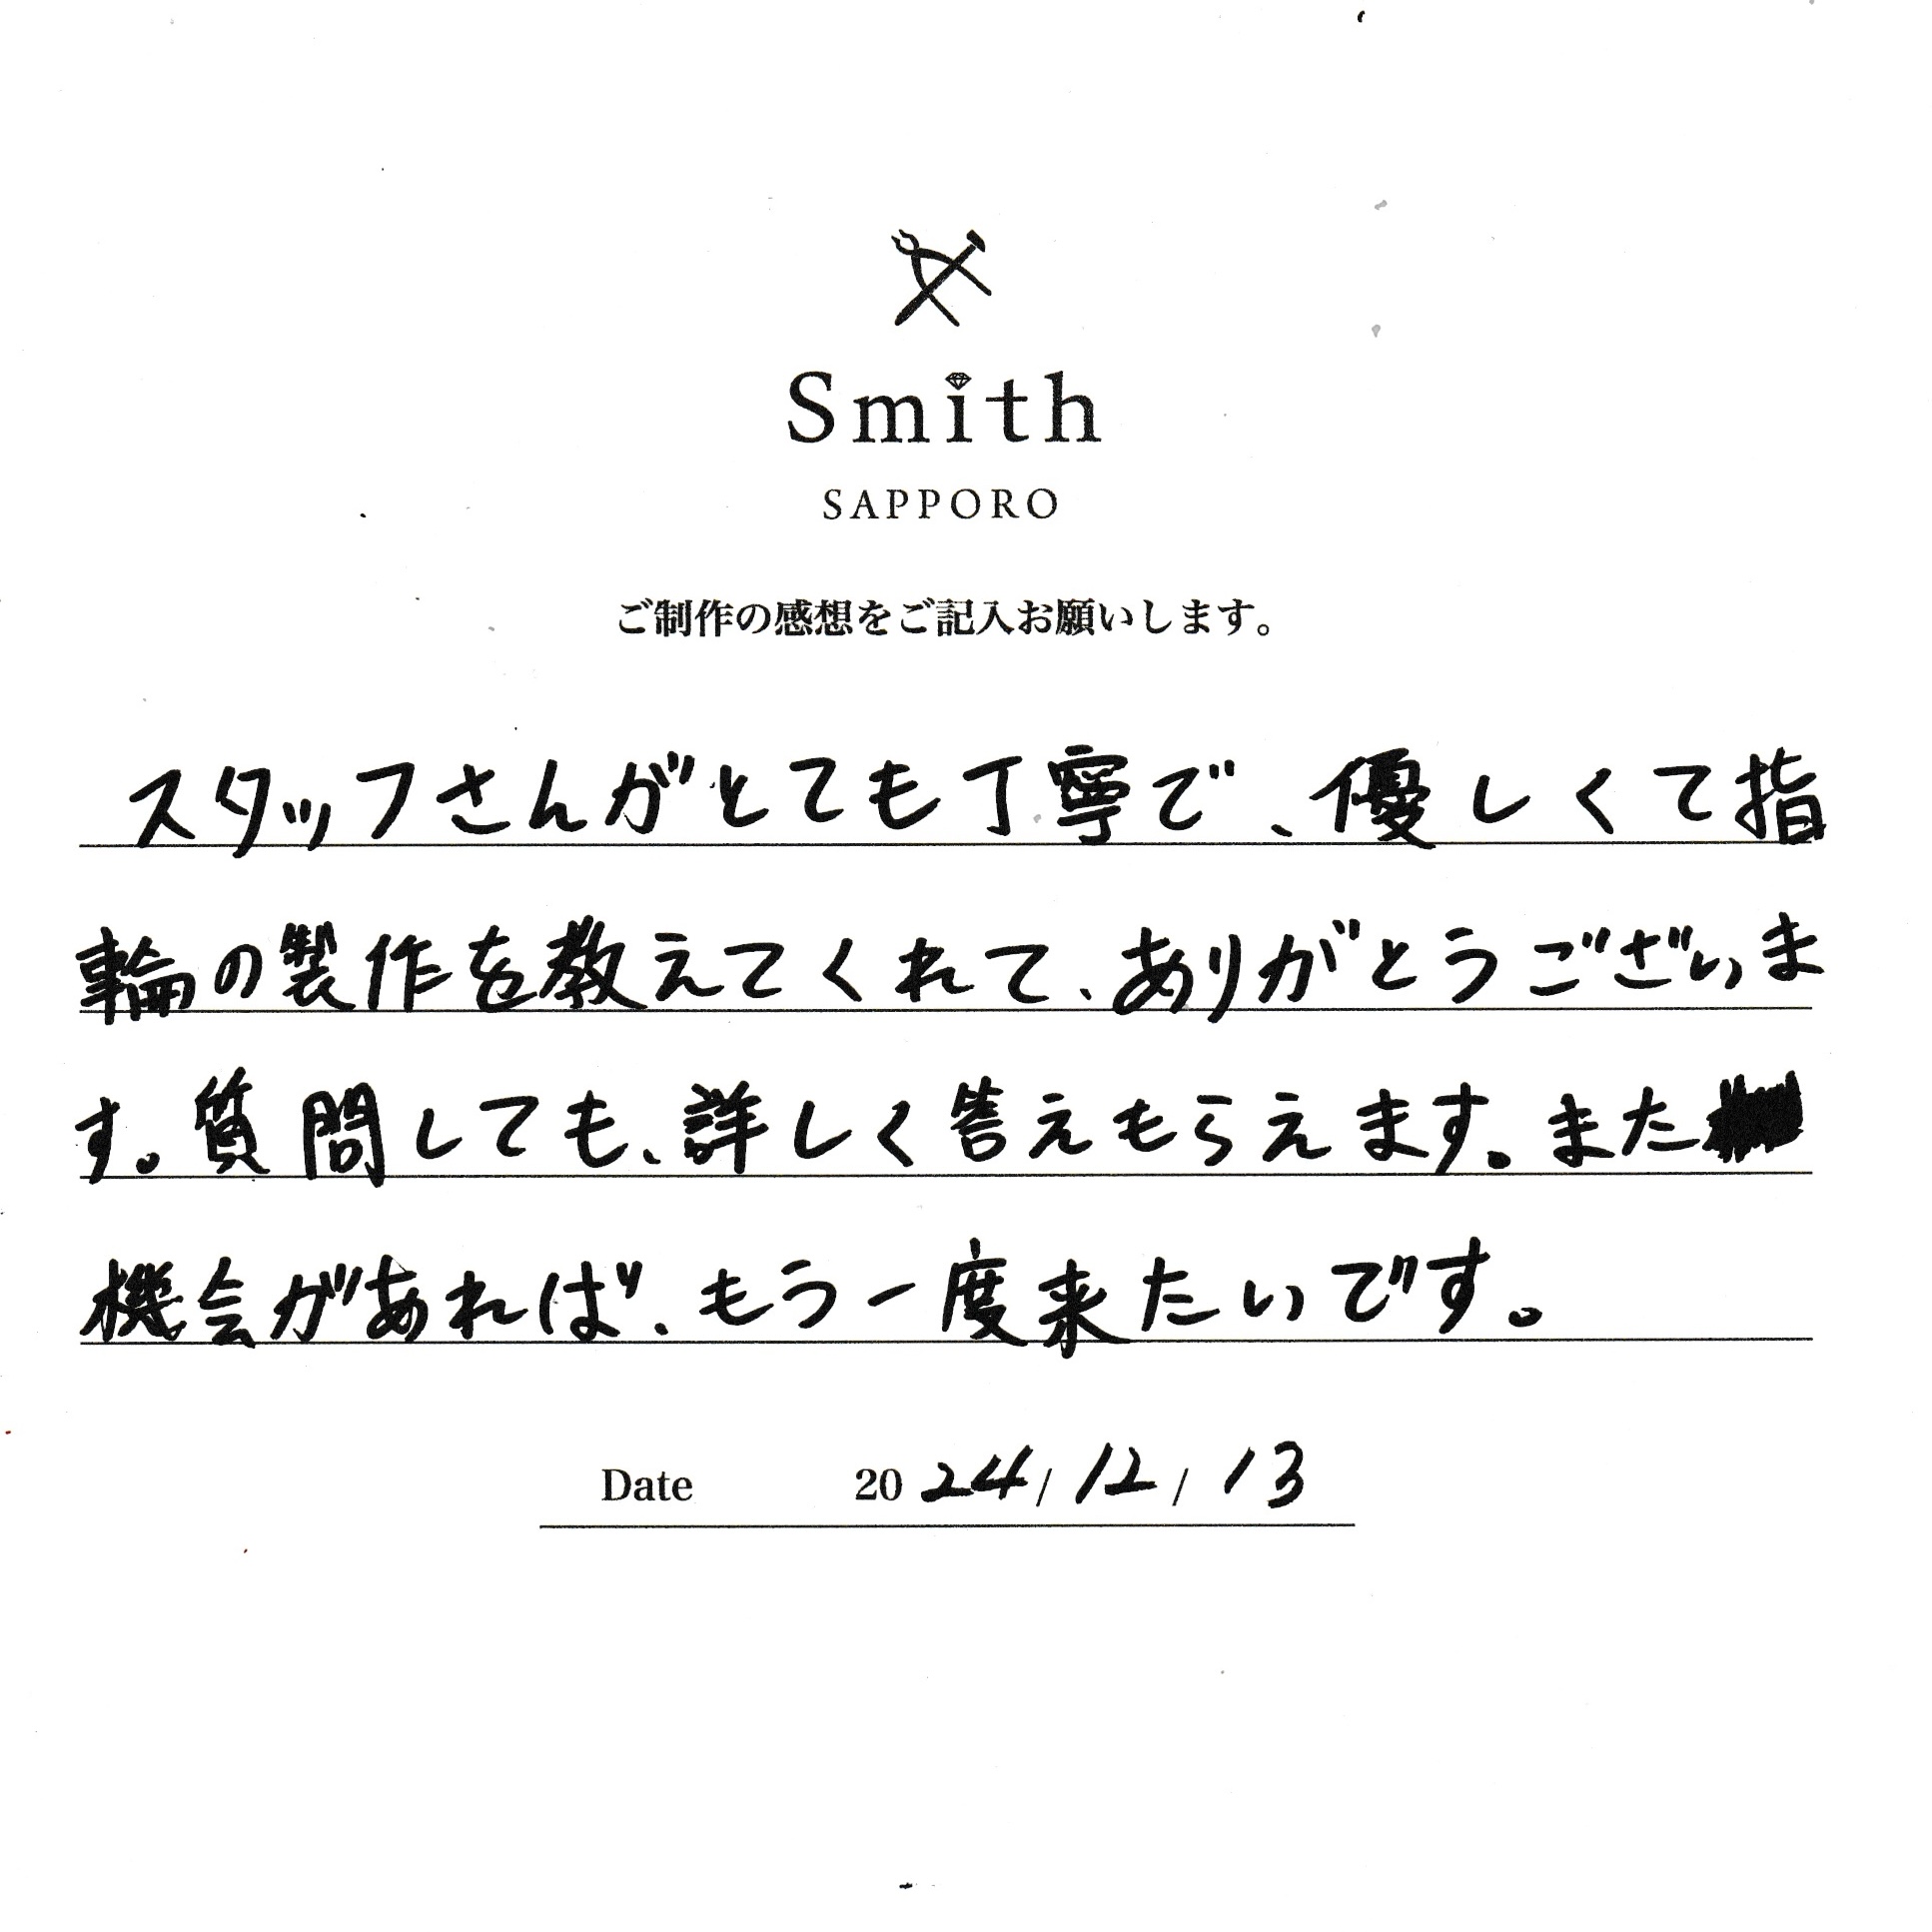 Smith
SAPPORO
ご制作の感想をご記入お願いします。
スタッフさんがとても丁寧で、優しくて指
輪の製作を教えてくれて、ありがとうございま
す。質問しても、詳しく答えもらえます。また
機会があれば、もう一度来たいです。
Date 2024/12/13